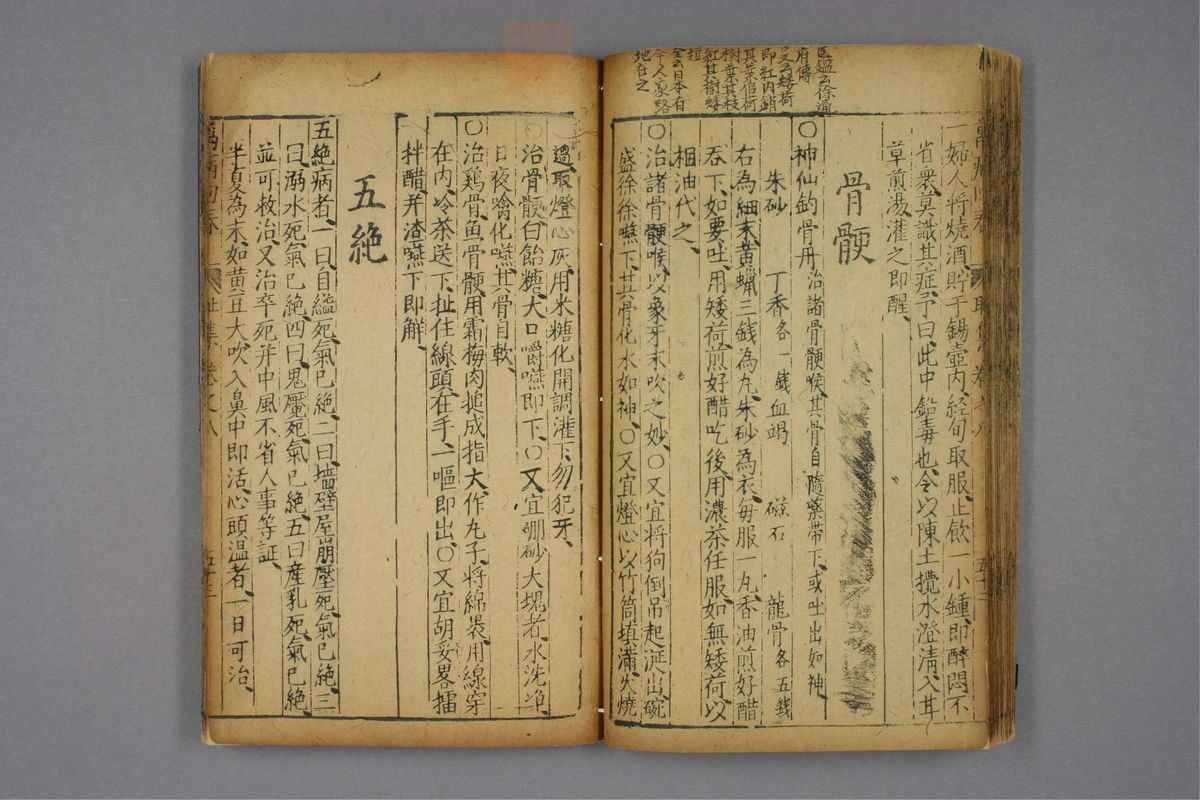 醫鑑云徐道
府傳
又云矮荷
即紅內銷
其葉佀荷
樹葉其枝
紅其樹矮
短
全云日本有
今人家略
地在之
一婦人將燒酒貯于錫壺內經旬取服止飲一小鍾即醉悶不
省衆莫識其症予曰此中鉛毒也令以陳土攪水澄清入甘
草煎湯灌之即醒
骨骾
〇神仙鈎骨丹 治諸骨骾喉其骨自隨藥帶下或吐出如神
朱砂 丁香各一錢 血竭 磁石 龍骨各五錢
右為細末黃蠟三錢為丸朱砂為衣每服一丸香油煎好醋
吞下如要吐用矮荷煎好醋吃後用濃茶任服如無矮荷以
桕油代之
〇治諸骨骾喉以象牙末吹之妙〇又宜將狗倒吊起涎出碗
盛徐徐嚥下其骨化水如神〇又宜燈心以竹筒填滿火燒
過取燈心灰用米糖化開調灌下勿犯牙
〇治骨骾白飴糖大口嚼嚥即下〇又宜硼砂大塊者水洗淨
日夜噙化嚥其骨自軟
〇治鷄骨魚骨骾用霜梅肉搥成指大作丸子將綿裹用線穿
在內冷茶送下扯住線頭在手一嘔即出〇又宜胡荽畧擂
拌醋并渣嚥下即解
五絕
五絕病者一曰自縊死氣已絕二曰墻壁屋崩壓死氣已絕三
曰溺水死氣已絕四曰鬼魘死氣已絕五曰産乳死氣已絕
並可救治又治卒死并中風不省人事等証
半夏為末如黃豆大吹入鼻中即活心頭溫者一日可治